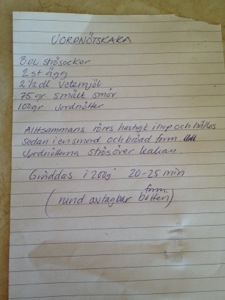 JORDNÖTSKAKA
3 DL strösocker
2 st ägg
2 ½ dl vetemjöl
75 gr smält smör
100gr Jordnötter
Alltsammans röres hastigt ihop och hälles
sedan i en smord och bröad form.
Jordnötterna strös över kakan
Gräddas i 200g 20-25 min
(rund avtagbar botten)
form